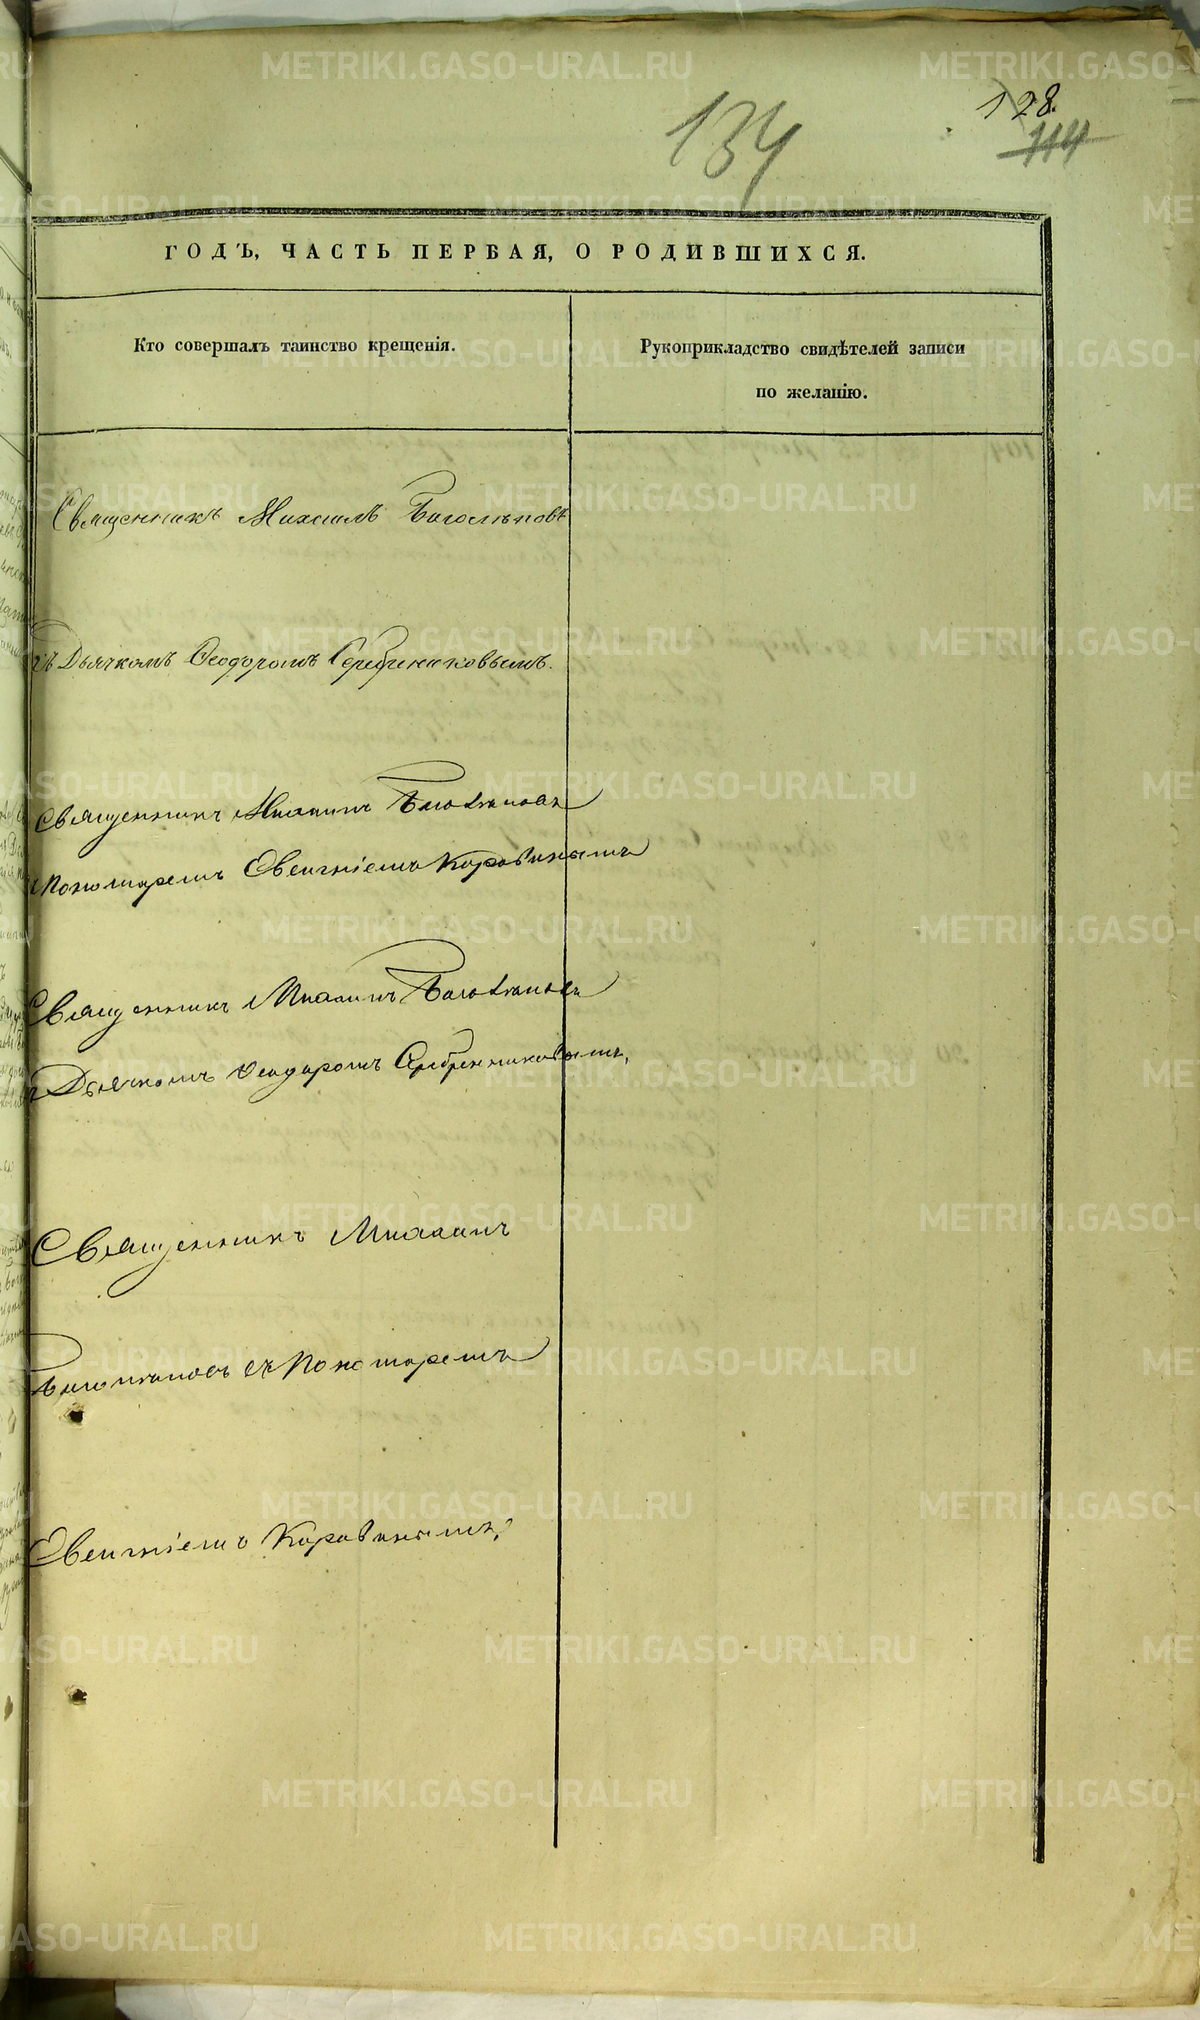 134
128.
114
ГОДЪ, ЧАСТЬ ПЕРВАЯ, О РОДИВШИХСЯ.
Кто совершалъ таинство крещенія.
Рукоприкладство свидѣтелей записи
по желанію.
Священникъ Михаилъ
съ Дьячкомъ Ѳеодоромъ Серебрениковымъ.
Священникъ Михаилъ
Пономаремъ Евгеніемъ Коровинымъ
Священникъ Михаилъ
Дьячкомъ Ѳеодоромъ Серебренниковымъ,
Священникъ Михаилъ
съ Пономаремъ
Евгеніемъ Коровинымъ,
METRIKI.GASO-URAL.RU